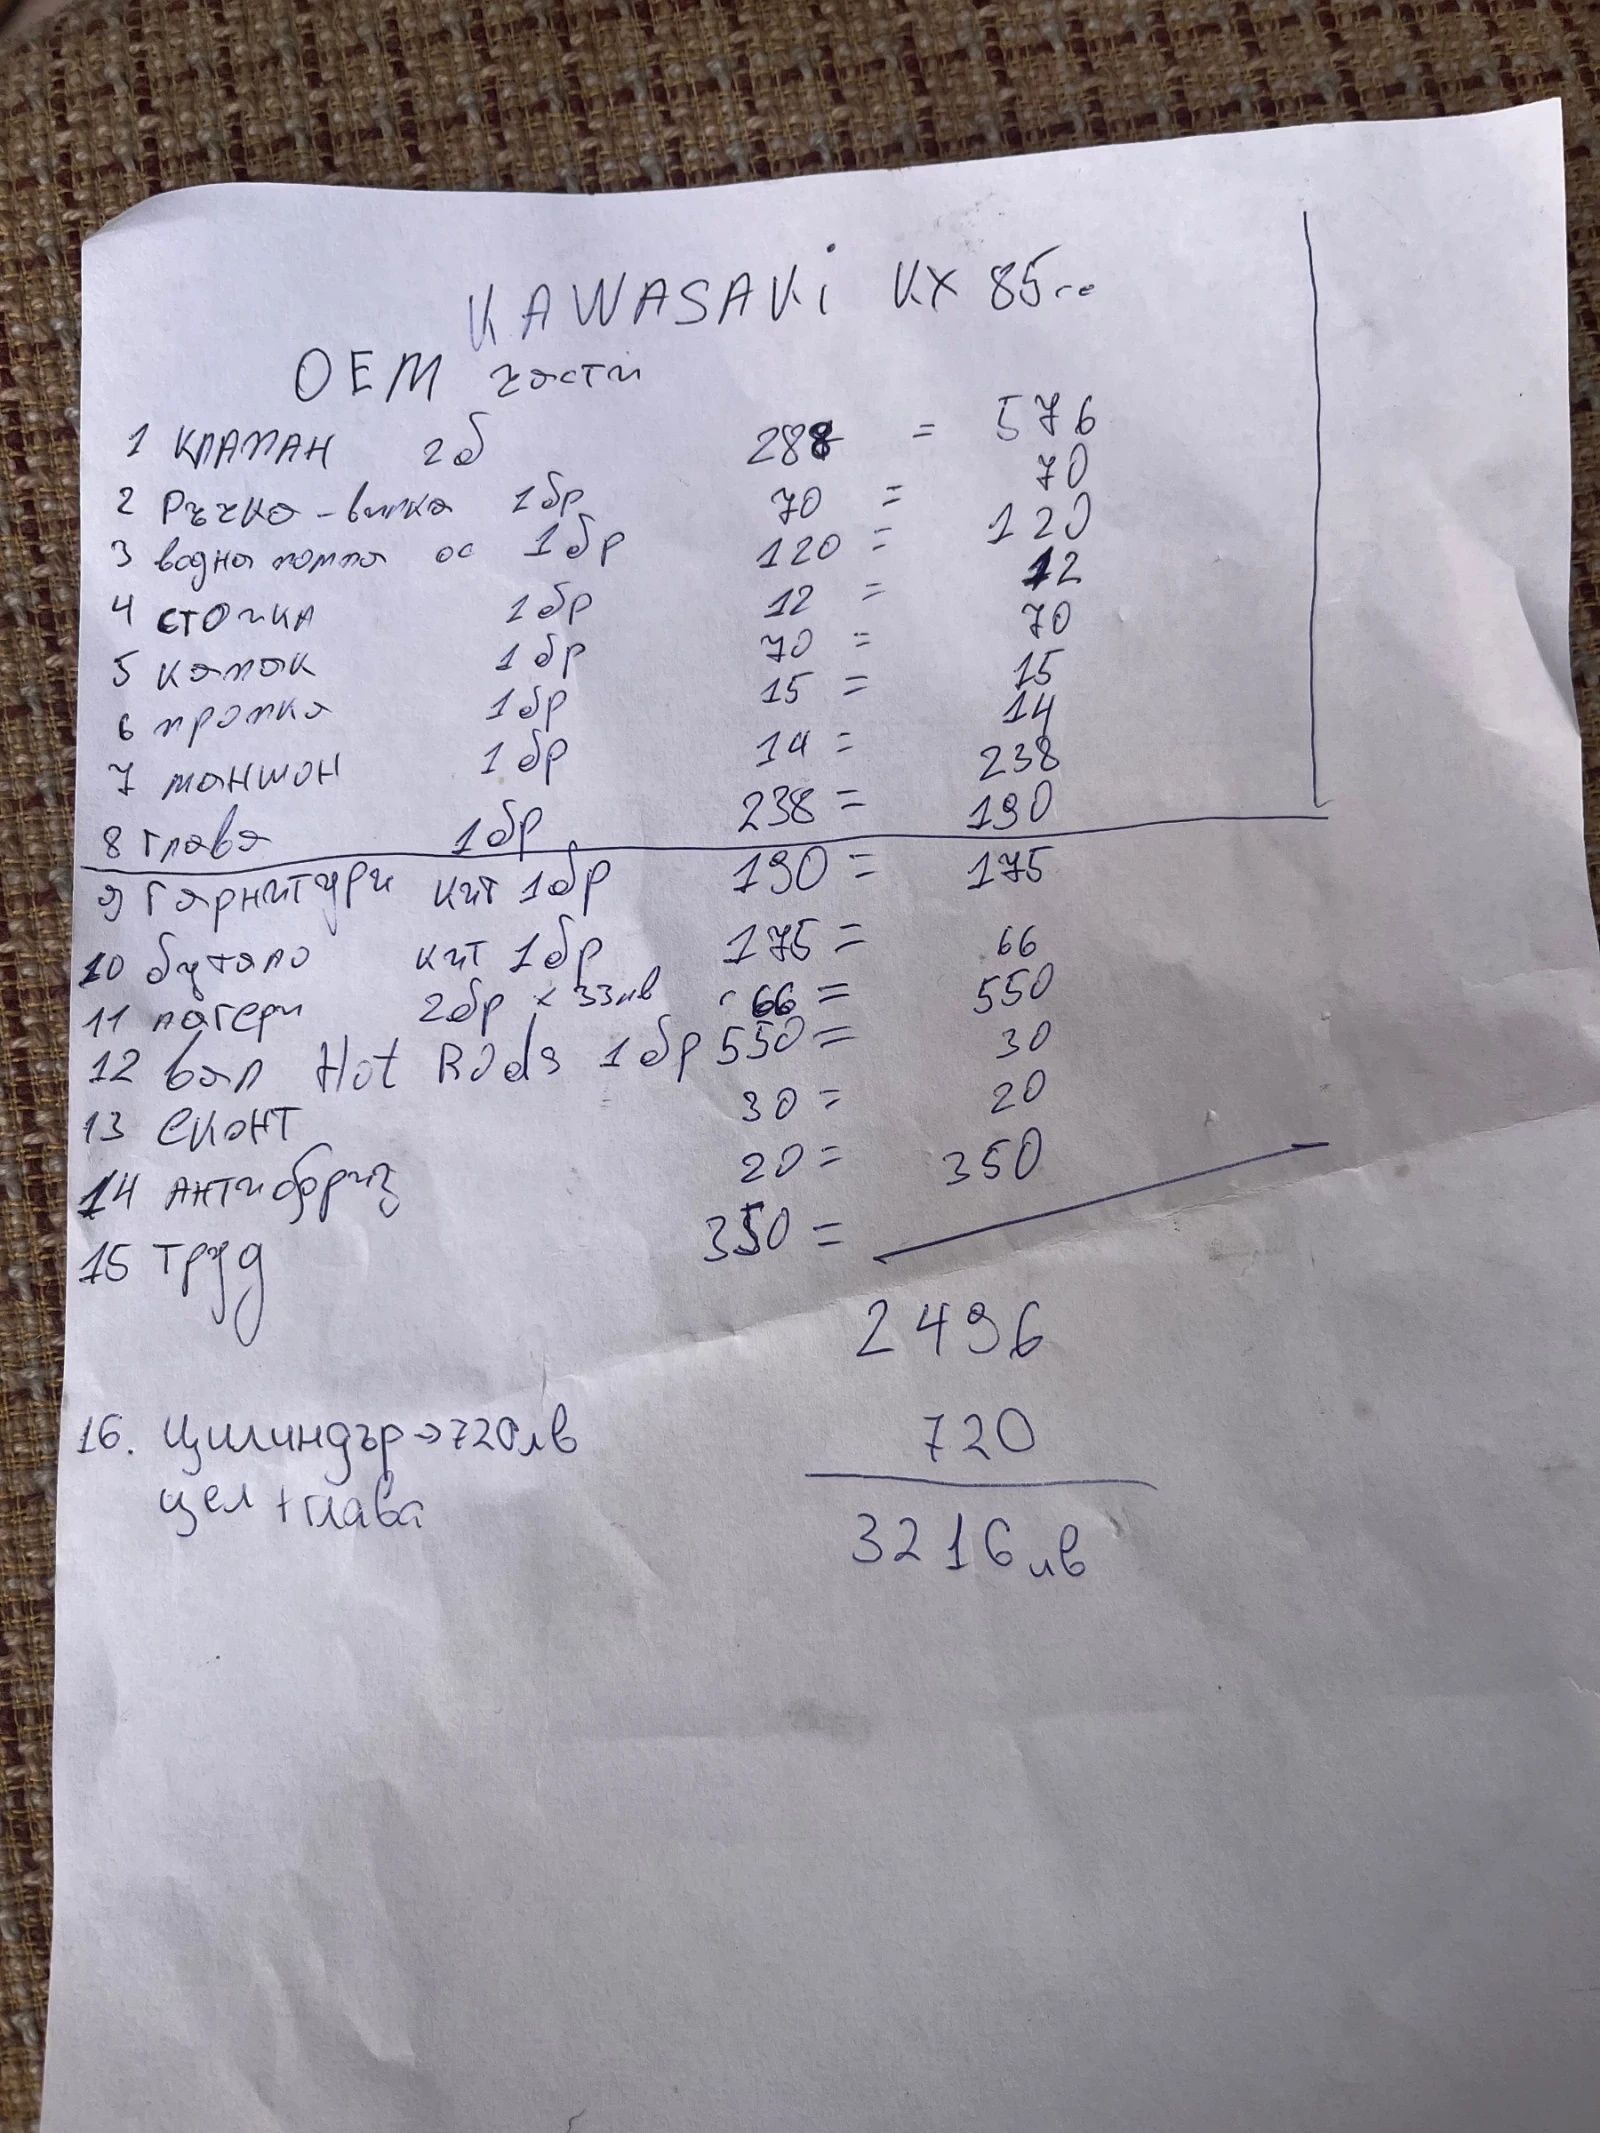 KAWASAKi KX 85cc
OEM части
1 КЛАПАН 2б 288 = 576
2 Ръчка-вилка 1бр 70 = 70
3 водна помпа ос 1бр 120 = 120
4 стойка 1бр 12 = 12
5 капак 1бр 70 = 70
6 тропка 1бр 15 = 15
7 маншон 1бр 14 = 14
8 глава 1бр 238 = 238
9 Гарнитури кит 1бр 190 = 190
10 бутало кит 1бр 175 = 175
11 лагери 2бр x 33лв 66 = 66
12 вал Hot Rods 1бр 550 = 550
13 30 = 30
14 антифриз 20 = 20
15 труд 350 = 350
2496
16. Цилиндър → 720лв 720
цел + глава
3216лв